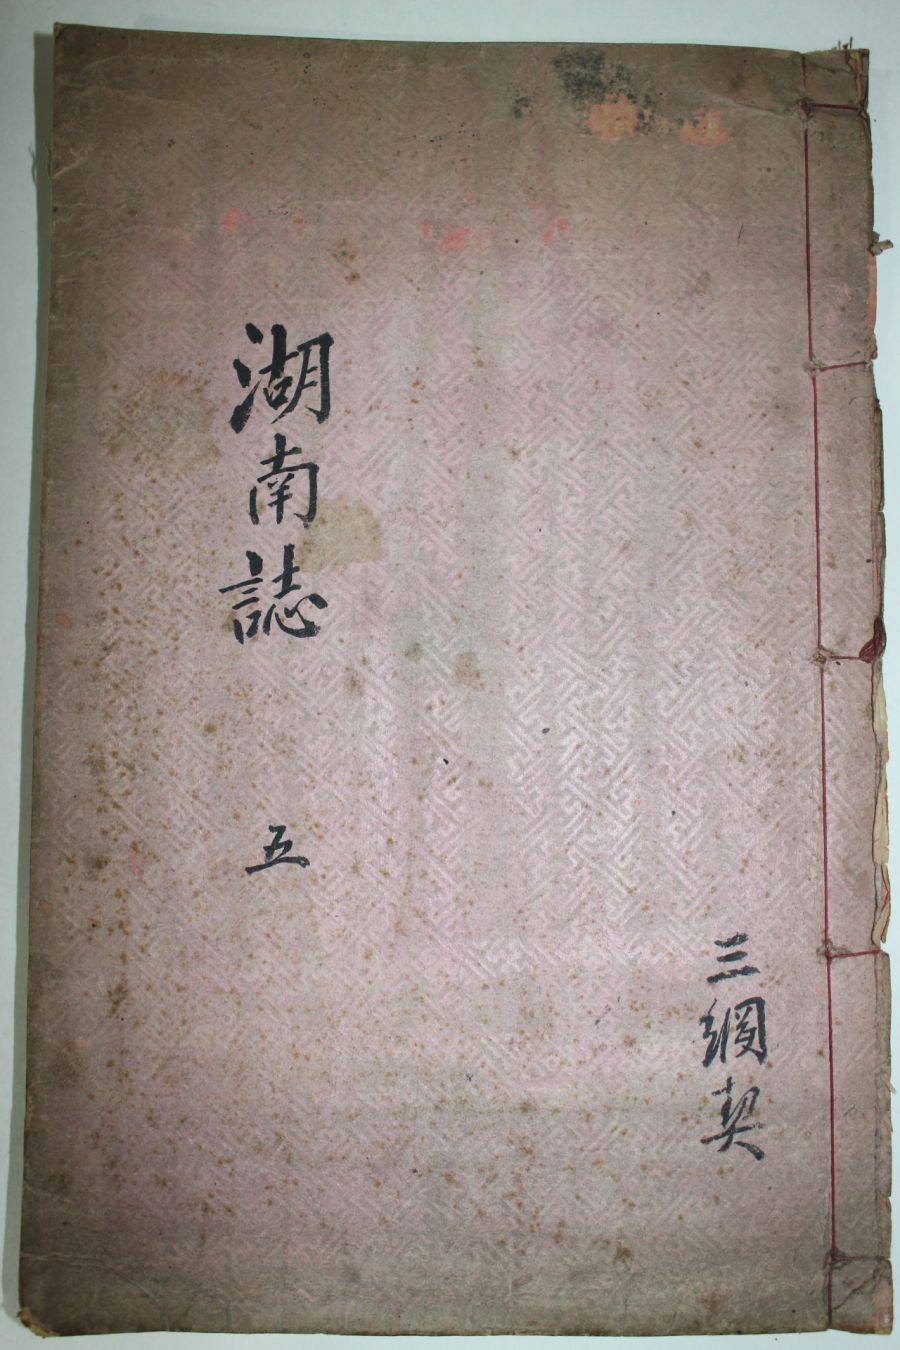 湖南誌 五
三綱契